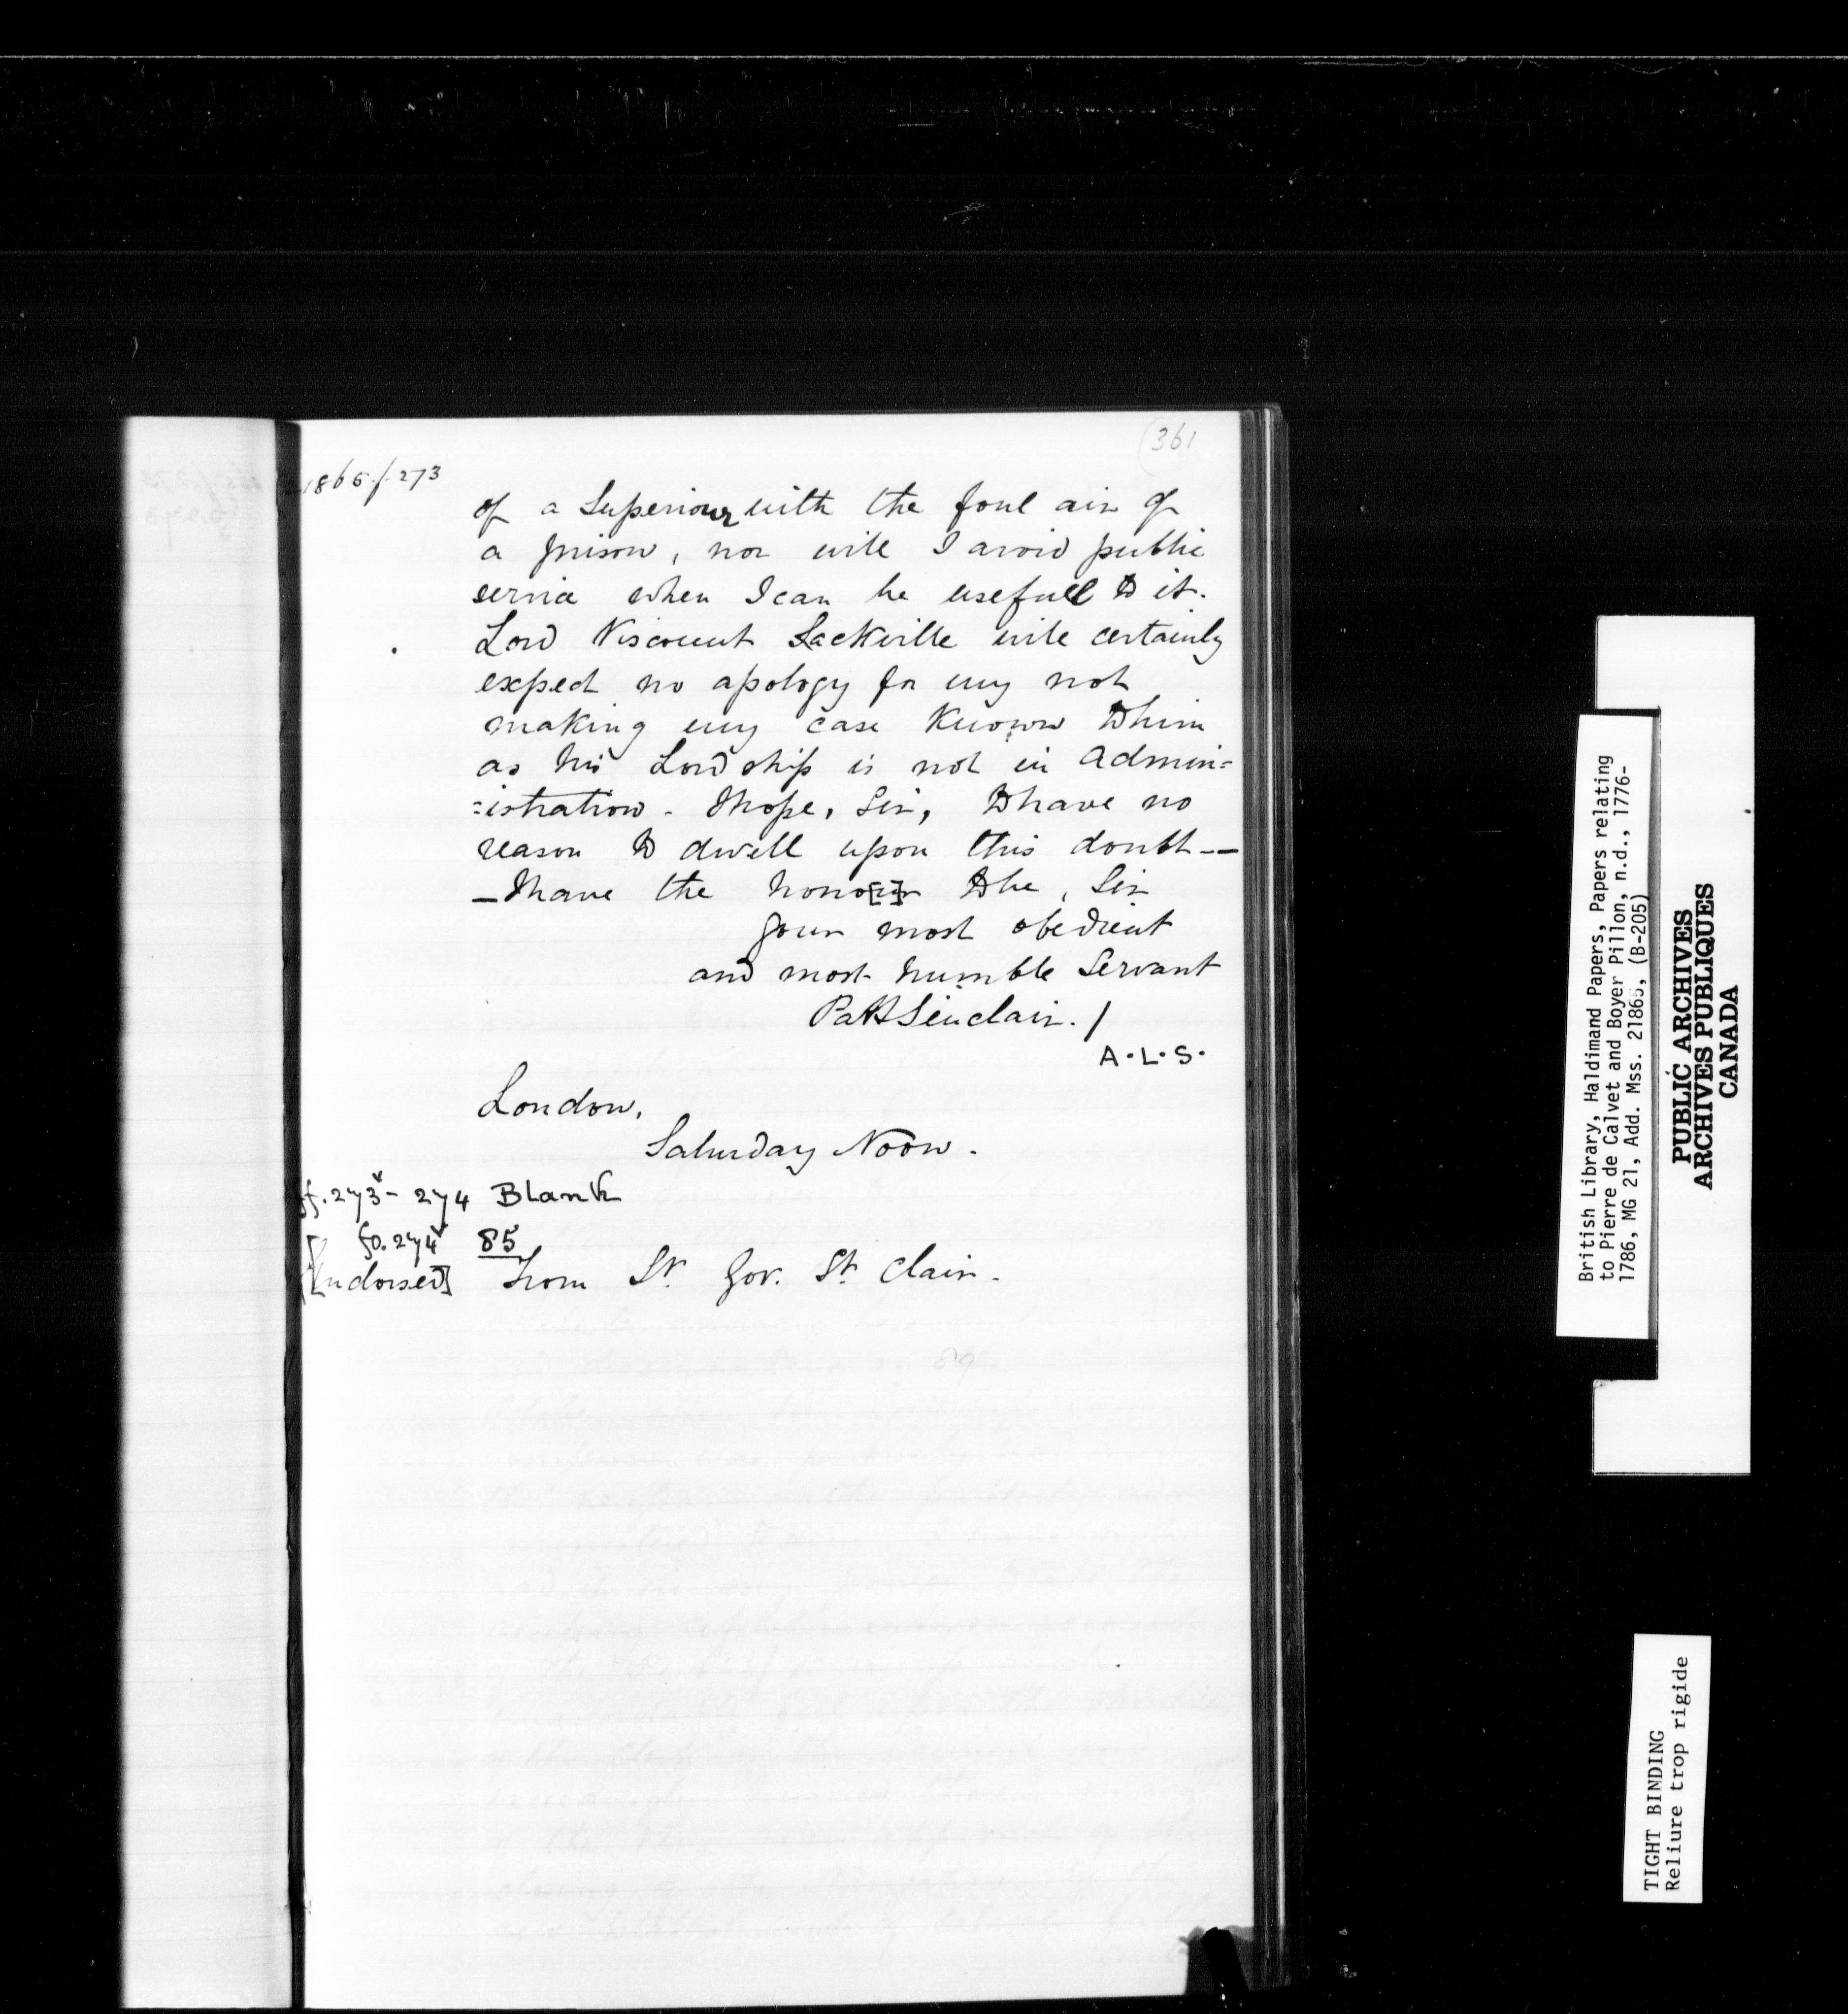 361
21865 f. 273
of a Superiour with the foul air of
a prison, nor will I avoid public
service when I can be usefull to it.
Lord Viscount Sackville will certainly
expect no apology for my not
making my case Known to him
as his Lordship is not in Admin=
=istration - I hope, Sir, to have no
reason to dwell upon this doubt --
- I have the hono[u]r to be, Sir
your most obedient
and most humble Servant
Patt Sinclair. /
A.L.S.
London,
Saturday Noon.
ff. 273v - 274 Blank
fo. 274v 85
[Endorsed] From Lt. Gov. St. Clair.
British Library, Haldimand Papers, Papers relating
to Pierre de Calvet and Boyer Pillon, n.d., 1776-
1786, MG 21, Add. Mss. 21865, (B-205)
PUBLIC ARCHIVES
ARCHIVES PUBLIQUES
CANADA
TIGHT BINDING
Reliure trop rigide